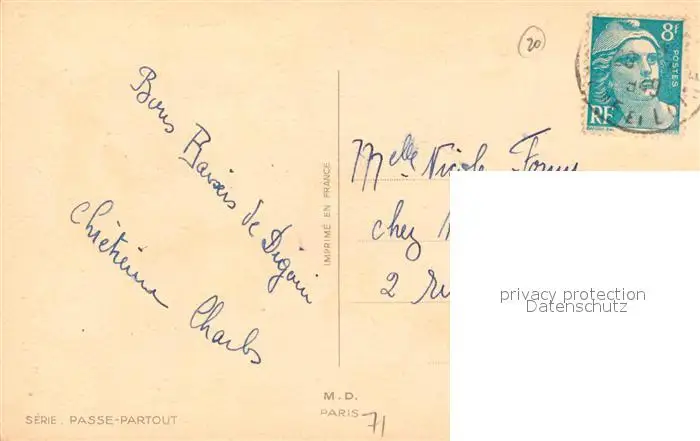 20
8F
POSTES
RF
Bons Baisers de Digoin
Chrétienne Charles
IMPRIMÉ EN FRANCE
Melle Nicole
chez
2 rue
privacy protection
Datenschutz
M.D.
PARIS
71
SÉRIE. PASSE-PARTOUT